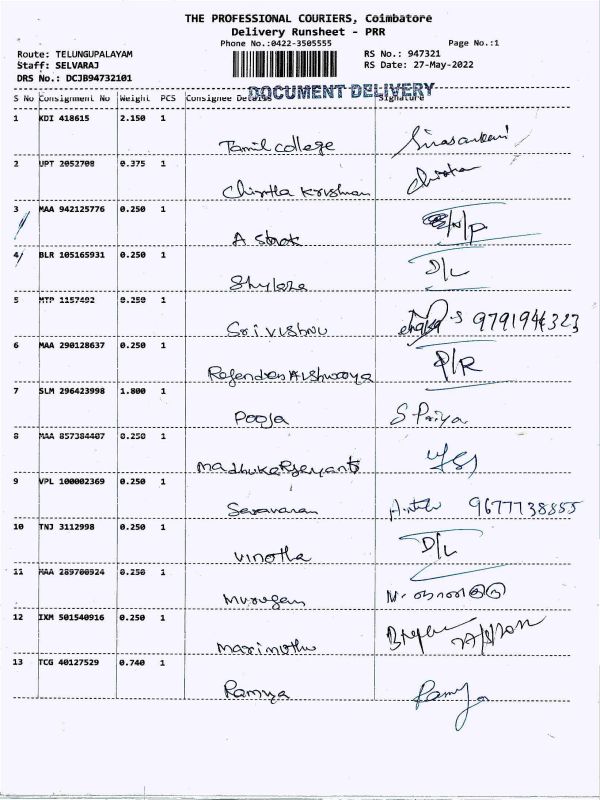 THE PROFESSIONAL COURIERS, Coimbatore
Delivery Runsheet - PRR
Phone No.:0422-3505555 Page No.:1
Route: TELUNGUPALAYAM RS No.: 947321
Staff: SELVARAJ RS Date: 27-May-2022
DRS No.: DCJB94732101
DOCUMENT DELIVERY
S No Consignment No Weight PCS Consignee Details Signature
1 KDI 418615 2.150 1
Tamil college
2 UPT 2052708 0.375 1
Chintha Krishnan
3 MAA 942125776 0.250 1
A
4 BLR 105165931 0.250 1
D/L
5 MTP 1157492 0.250 1
Sri Vishnu 9791944323
6 MAA 290128637 0.250 1
7 SLM 296423998 1.800 1
Pooja S Priya
8 MAA 857384407 0.250 1
9 VPL 100002369 0.250 1
Saravanan 9677738855
10 TNJ 3112998 0.250 1
Vinotha D/L
11 MAA 289700924 0.250 1
Murugan
12 IXM 501540916 0.250 1
Marimuthu
13 TCG 40127529 0.740 1
Ramya Ramya